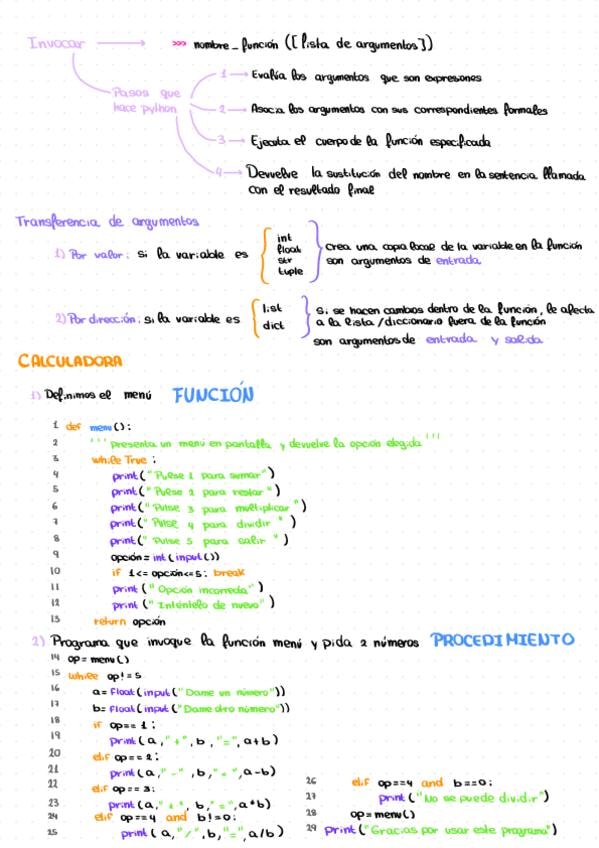 Invocar >>> nombre_función ([lista de argumentos])
Pasos que
hace python
1 Evalúa los argumentos que son expresiones
2 Asocia los argumentos con sus correspondientes formales
3 Ejecuta el cuerpo de la función especificada
4 Devuelve la sustitución del nombre en la sentencia llamada
con el resultado final
Transferencia de argumentos
1) Por valor: si la variable es
int
float
str
tuple
crea una copia local de la variable en la función
son argumentos de entrada
2) Por dirección: si la variable es
list
dict
si se hacen cambios dentro de la función, le afecta
a la lista/diccionario fuera de la función
son argumentos de entrada y salida
CALCULADORA
1) Definimos el menú FUNCIÓN
1 def menu():
2 '''presenta un menú en pantalla y devuelve la opción elegida'''
3 while True:
4 print("Pulse 1 para sumar")
5 print("Pulse 2 para restar")
6 print("Pulse 3 para multiplicar")
7 print("Pulse 4 para dividir")
8 print("Pulse 5 para salir")
9 opción = int(input())
10 if 1<= opción<=5: break
11 print("Opción incorrecta")
12 print("Inténtelo de nuevo")
13 return opción
2) Programa que invoque la función menú y pida 2 números PROCEDIMIENTO
14 op = menu()
15 while op!=5
16 a = float(input("Dame un número"))
17 b = float(input("Dame otro número"))
18 if op== 1:
19 print(a,"+",b,"=",a+b)
20 elif op==2:
21 print(a,"-",b,"=",a-b)
22 elif op==3:
23 print(a,"*",b,"=",a*b)
24 elif op==4 and b!=0:
25 print(a,"/",b,"=",a/b)
26 elif op==4 and b==0:
27 print("No se puede dividir")
28 op=menu()
29 print("Gracias por usar este programa")